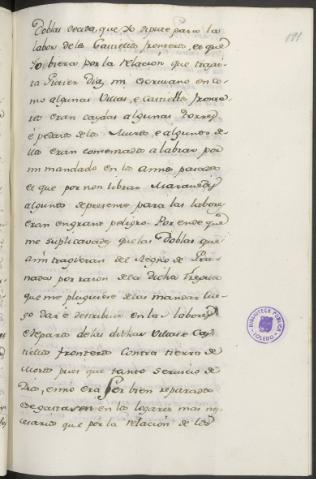 Doblas decia, que yo dipute para las
labor de los Castillos fronteros, es que
yo viera por la relacion que traxo
Xavier Diaz, mi escrivano en co
mo algunas Villas, e Castillos fronte
ros eran caydas algunas torres,
e pedazos de los Muros e algunos de
llos eran comenzados a labrar por
mi mandado en los annos pasados
el que por non librar Maravedis
algunos de presente para las labores
eran en grant peligro. Por ende que
me suplicavades que las Doblas que
a mi tragieran del Regno de Gra-
nada por razon de la dicha Tregua
que me pluguiese de las mandar lue-
go dar e destribuir en las labores,
e reparos de las dichas Villas e Cas
tillos fronteros contra tierra de
Moros pues que tanto servicio de
Dios, e mio era ser bien reparados
e se gastasen en los logares mas ne
cesarios que por la relacion de los
181
BIBLIOTECA PUBLICA
TOLEDO